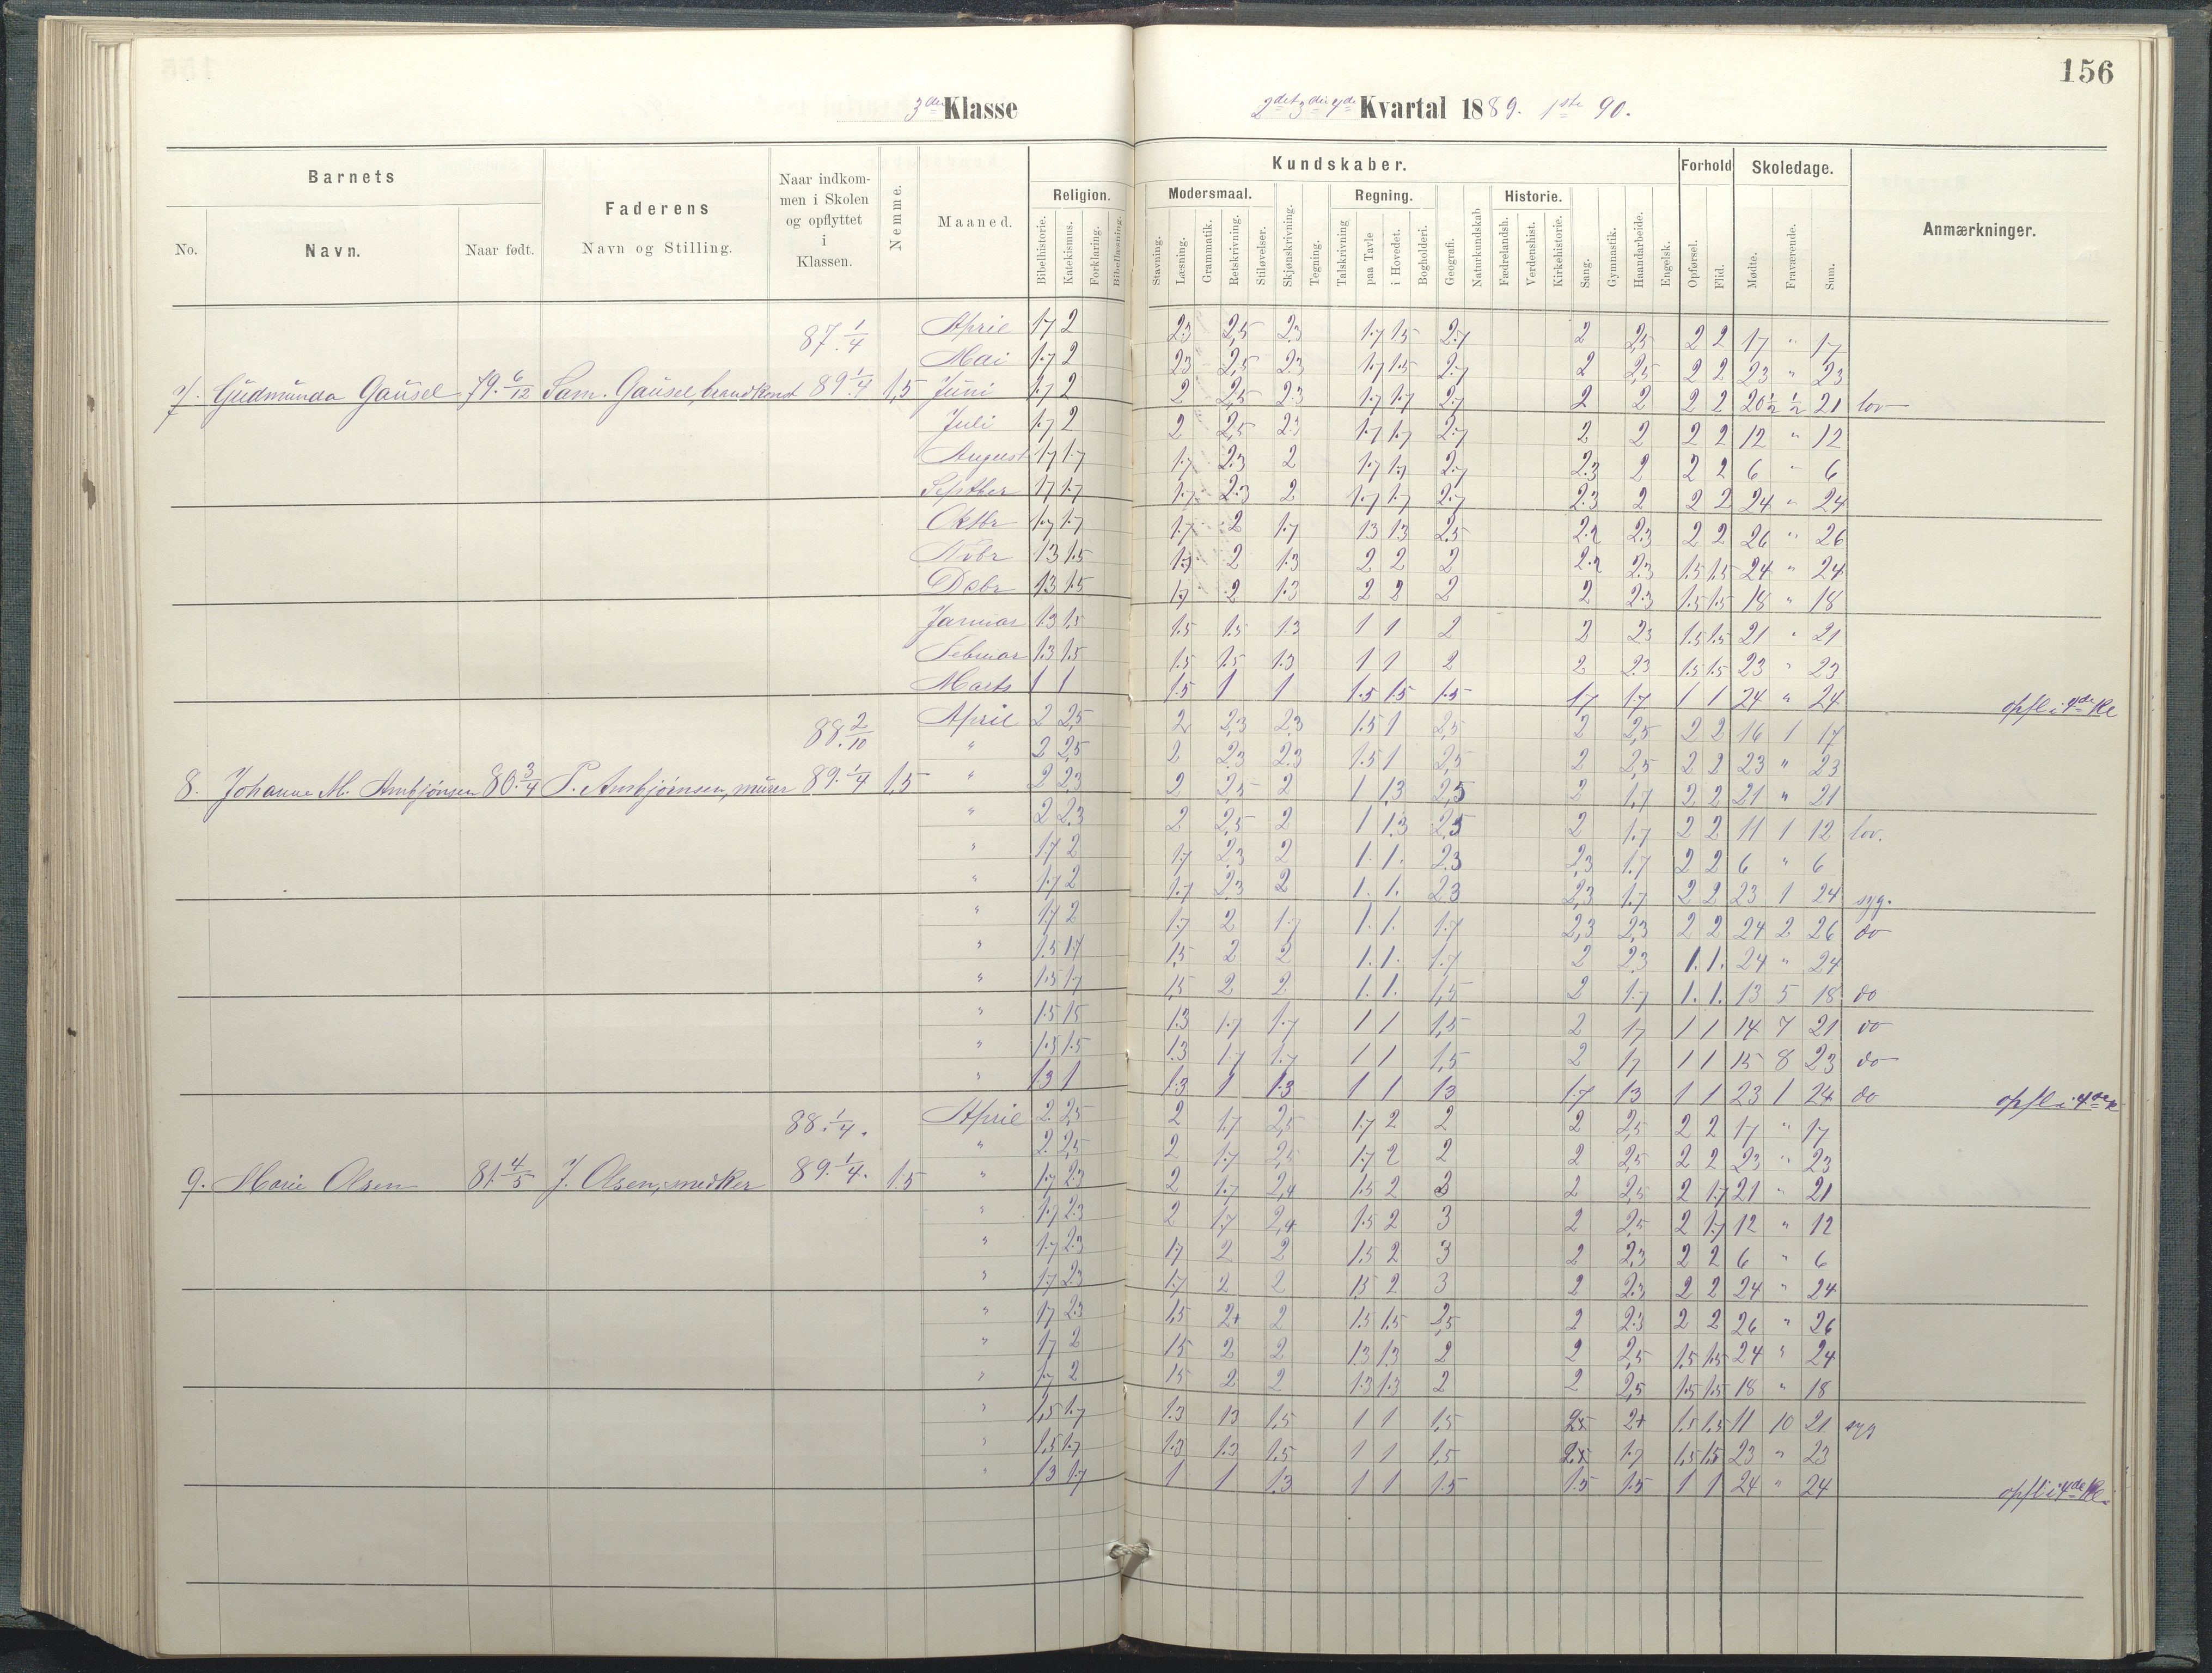 156
3die Klasse
2det 3die 4de Kvartal 1889. 1ste 90.
Barnets
Faderens
Naar indkommen i Skolen og opflyttet i Klassen.
Nemme.
Maaned.
Kundskaber.
Forhold
Skoledage.
Anmærkninger.
No. Navn. Naar født. Navn og Stilling.
Religion. Modersmaal. Regning. Historie.
Bibelhistorie. Katekismus. Forklaring. Bibellæsning. Stavning. Læsning. Grammatik. Retskrivning. Stiløvelser. Skjønskrivning. Tegning. Talskrivning paa Tavle i Hovedet. Bogholderi. Geografi. Naturkundskab Fædrelandsh. Verdenshist. Kirkehistorie. Sang. Gymnastik. Haandarbeide. Engelsk. Opførsel. Flid. Mødte. Fraværende. Sum.
87. 1/4 April 1.7 2 2.3 2,5 2.3 1.7 1.5 2.7 2 2,5 2 2 17 " 17
Mai 1.7 2 2.3 2,5 2.3 1.7 1.5 2.7 2 2,5 2 2 23 " 23
7. Gudmunda Gausel 79. 6/12 Sam. Gausel, brandkonst 89 1/4 1,5 Juni 1.7 2 2 2,5 2.3 1.7 1.7 2.7 2 2 2 2 20 1/2 1/2 21 lov
Juli 1.7 2 2 2,5 2.3 1.7 1.7 2.7 2 2 2 2 12 " 12
August 1.7 1.7 1.7 2.3 2 1.7 1.7 2.7 2.3 2 2 2 6 " 6
Septber 1.7 1.7 1.7 2.3 2 1.7 1.7 2.7 2.3 2 2 2 24 " 24
Oktbr 1.7 1.7 1.7 2 1.7 1.3 1.3 2.5 2.2 2.3 2 2 26 " 26
Novbr 1.3 1.5 1.7 2 1.3 2 2 2 2.2 2.3 1.5 1.5 24 " 24
Debr 1.3 1.5 1.7 2 1.3 2 2 2 2 2.3 1.5 1.5 18 " 18
Januar 1.3 1.5 1.5 1.5 1.3 1 1 2 2 2.3 1.5 1.5 21 " 21
Februar 1.3 1.5 1.5 1.5 1.3 1 1 2 2 2.3 1.5 1.5 23 " 23
Marts 1 1 1.5 1 1 1.5 1.5 1.5 1.7 1.7 1 1 24 " 24 opfl. i 4de Kl
88. 2/10 April 2 2,5 2 2,3 2,3 1.5 1 2,5 2 2,5 2 2 16 1 17
" 2 2,5 2 2.3 2.3 1.5 1 2,5 2 2,5 2 2 23 " 23
8. Johanne M. Arnbjörnsen 80. 3/4 P. Arnbjörnsen, murer 89. 1/4 1,5 " 2 2,3 2 2,5 2 1 1,3 2,5 2 1,7 2 2 21 " 21
" 2 2.3 2 2,5 2 1 1.3 2.5 2 1.7 2 2 11 1 12 lov.
" 1.7 2 1.7 2.3 2 1. 1. 2.3 2,3 1.7 2 2 6 " 6
" 1.7 2 1.7 2.3 2 1. 1. 2.3 2,3 1.7 2 2 23 1 24 syg.
" 1.7 2 1.7 2 1.7 1. 1. 1.7 2,3 2,3 2 2 24 2 26 do
" 1.5 1.7 1,5 2 2 1. 1. 1.7 2 2.3 1. 1. 24 " 24
" 1.5 1.7 1,5 2 2 1. 1. 1,5 2 1.7 1. 1. 13 5 18 do
" 1.5 1.5 1.3 1.7 1.7 1 1 1,5 2 1.7 1 1 14 7 21 do
" 1.5 1.5 1.3 1.7 1.7 1 1 1,5 2 1.7 1 1 15 8 23 do
" 1.3 1 1.3 1 1.3 1 1 1.3 1.7 1.3 1 1 23 1 24 do opfl. i 4de
88. 1/4. April 2. 2,5 2 1.7 2,5 1.7 2 2 2 2,5 2 2 17 " 17
" 2. 2,5 2 1.7 2,5 1.7 2 2 2 2,5 2 2 23 " 23
9. Marie Olsen 81. 4/5 J. Olsen, snedker 89. 1/4. 1.5 " 1.7 2.3 2 1.7 2,4 1.5 2 3 2 2,5 2 1.7 21 " 21
" 1.7 2.3 2 1.7 2,4 1.5 2 3 2 2,5 2 1.7 12 " 12
" 1.7 2.3 1.7 2 2 1.5 2 3 2 2.3 2 2 6 " 6
" 1.7 2.3 1.7 2 2 1.5 2 3 2 2.3 2 2 24 " 24
" 1.7 2.3 1,5 2+ 2 1.5 1.5 2,5 2 2.3 2 2 26 " 26
" 1.7 2 1.5 2 2 1.3 1.3 2 2 2,5 1.5 1.5 24 " 24
" 1.7 2 1.5 2 2 1.3 1.3 2 2 2,5 1.5 1.5 18 " 18
" 1,5 1.7 1.3 1.3 1,5 1 1 1,5 2+ 1.5 1.5 11 10 21 syg
" 1,5 1.7 1.3 1.3 1,5 1 1 1,5 1.7 1.5 1.5 23 " 23
" 1.3 1.7 1 1 1.3 1 1 1.5 1.5 1.5 1 1 24 " 24 opfl i 4de Kl.